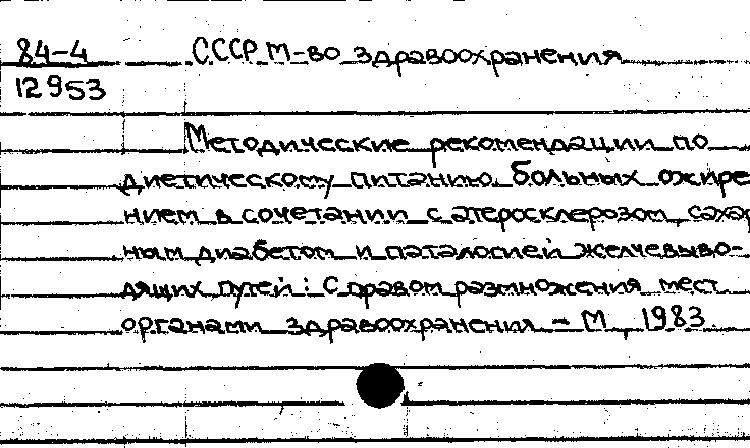 84-4 СССР М-во здравоохранения
12953
Методические рекомендации по
диетическому питанию больных ожире
нием в сочетании с атеросклерозом, сахар
ным диабетом и паталогией желчевыво-
дящих путей: С правом размножения мест
органами здравоохранения - М, 1983